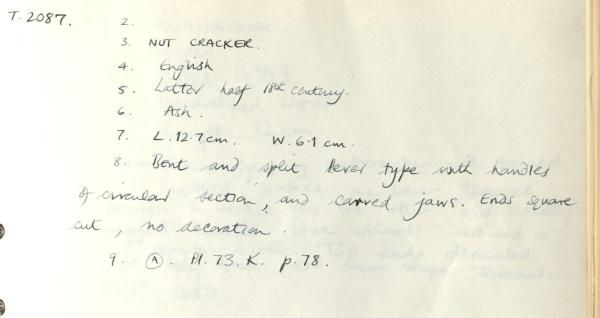 T. 2087. 2.
3. NUT CRACKER.
4. English
5. Latter half 18th century.
6. Ash.
7. L. 12.7 cm. W. 6.1 cm.
8. Bent and split lever type with handles
of circular section, and carved jaws. Ends square
cut, no decoration.
9. (A). Pl. 73. K. p. 78.